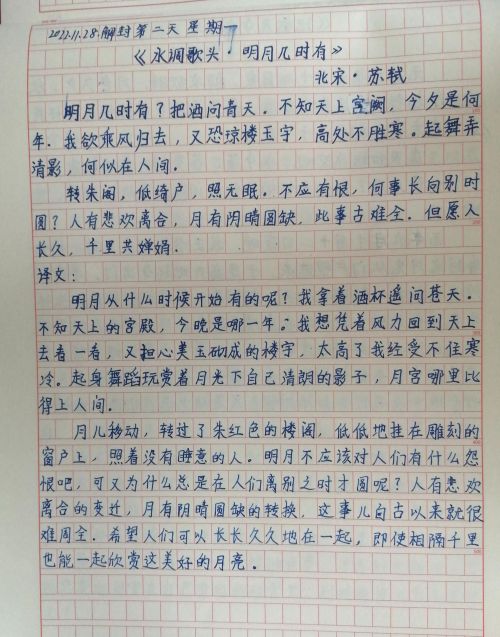 2022.11.28.解封第二天 星期
《水调歌头·明月几时有》
北宋·苏轼
明月几时有?把酒问青天。不知天上宫阙,今夕是何
年。我欲乘风归去,又恐琼楼玉宇,高处不胜寒。起舞弄
清影,何似在人间。
转朱阁,低绮户,照无眠。不应有恨,何事长向别时
圆?人有悲欢离合,月有阴晴圆缺,此事古难全。但愿人
长久,千里共婵娟。
译文:
明月从什么时候开始有的呢?我拿着酒杯遥问苍天。
不知天上的宫殿,今晚是哪一年。我想凭着风力回到天上
去看一看,又担心美玉砌成的楼宇,太高了我经受不住寒
冷。起身舞蹈玩赏着月光下自己清朗的影子,月宫哪里比
得上人间。
月儿移动,转过了朱红色的楼阁,低低地挂在雕刻的
窗户上,照着没有睡意的人。明月不应该对人们有什么怨
恨吧,可又为什么总是在人们离别之时才圆呢?人有悲欢
离合的变迁,月有阴晴圆缺的转换,这事儿自古以来就很
难周全。希望人们可以长长久久地在一起,即使相隔千里
也能一起欣赏这美好的月亮。